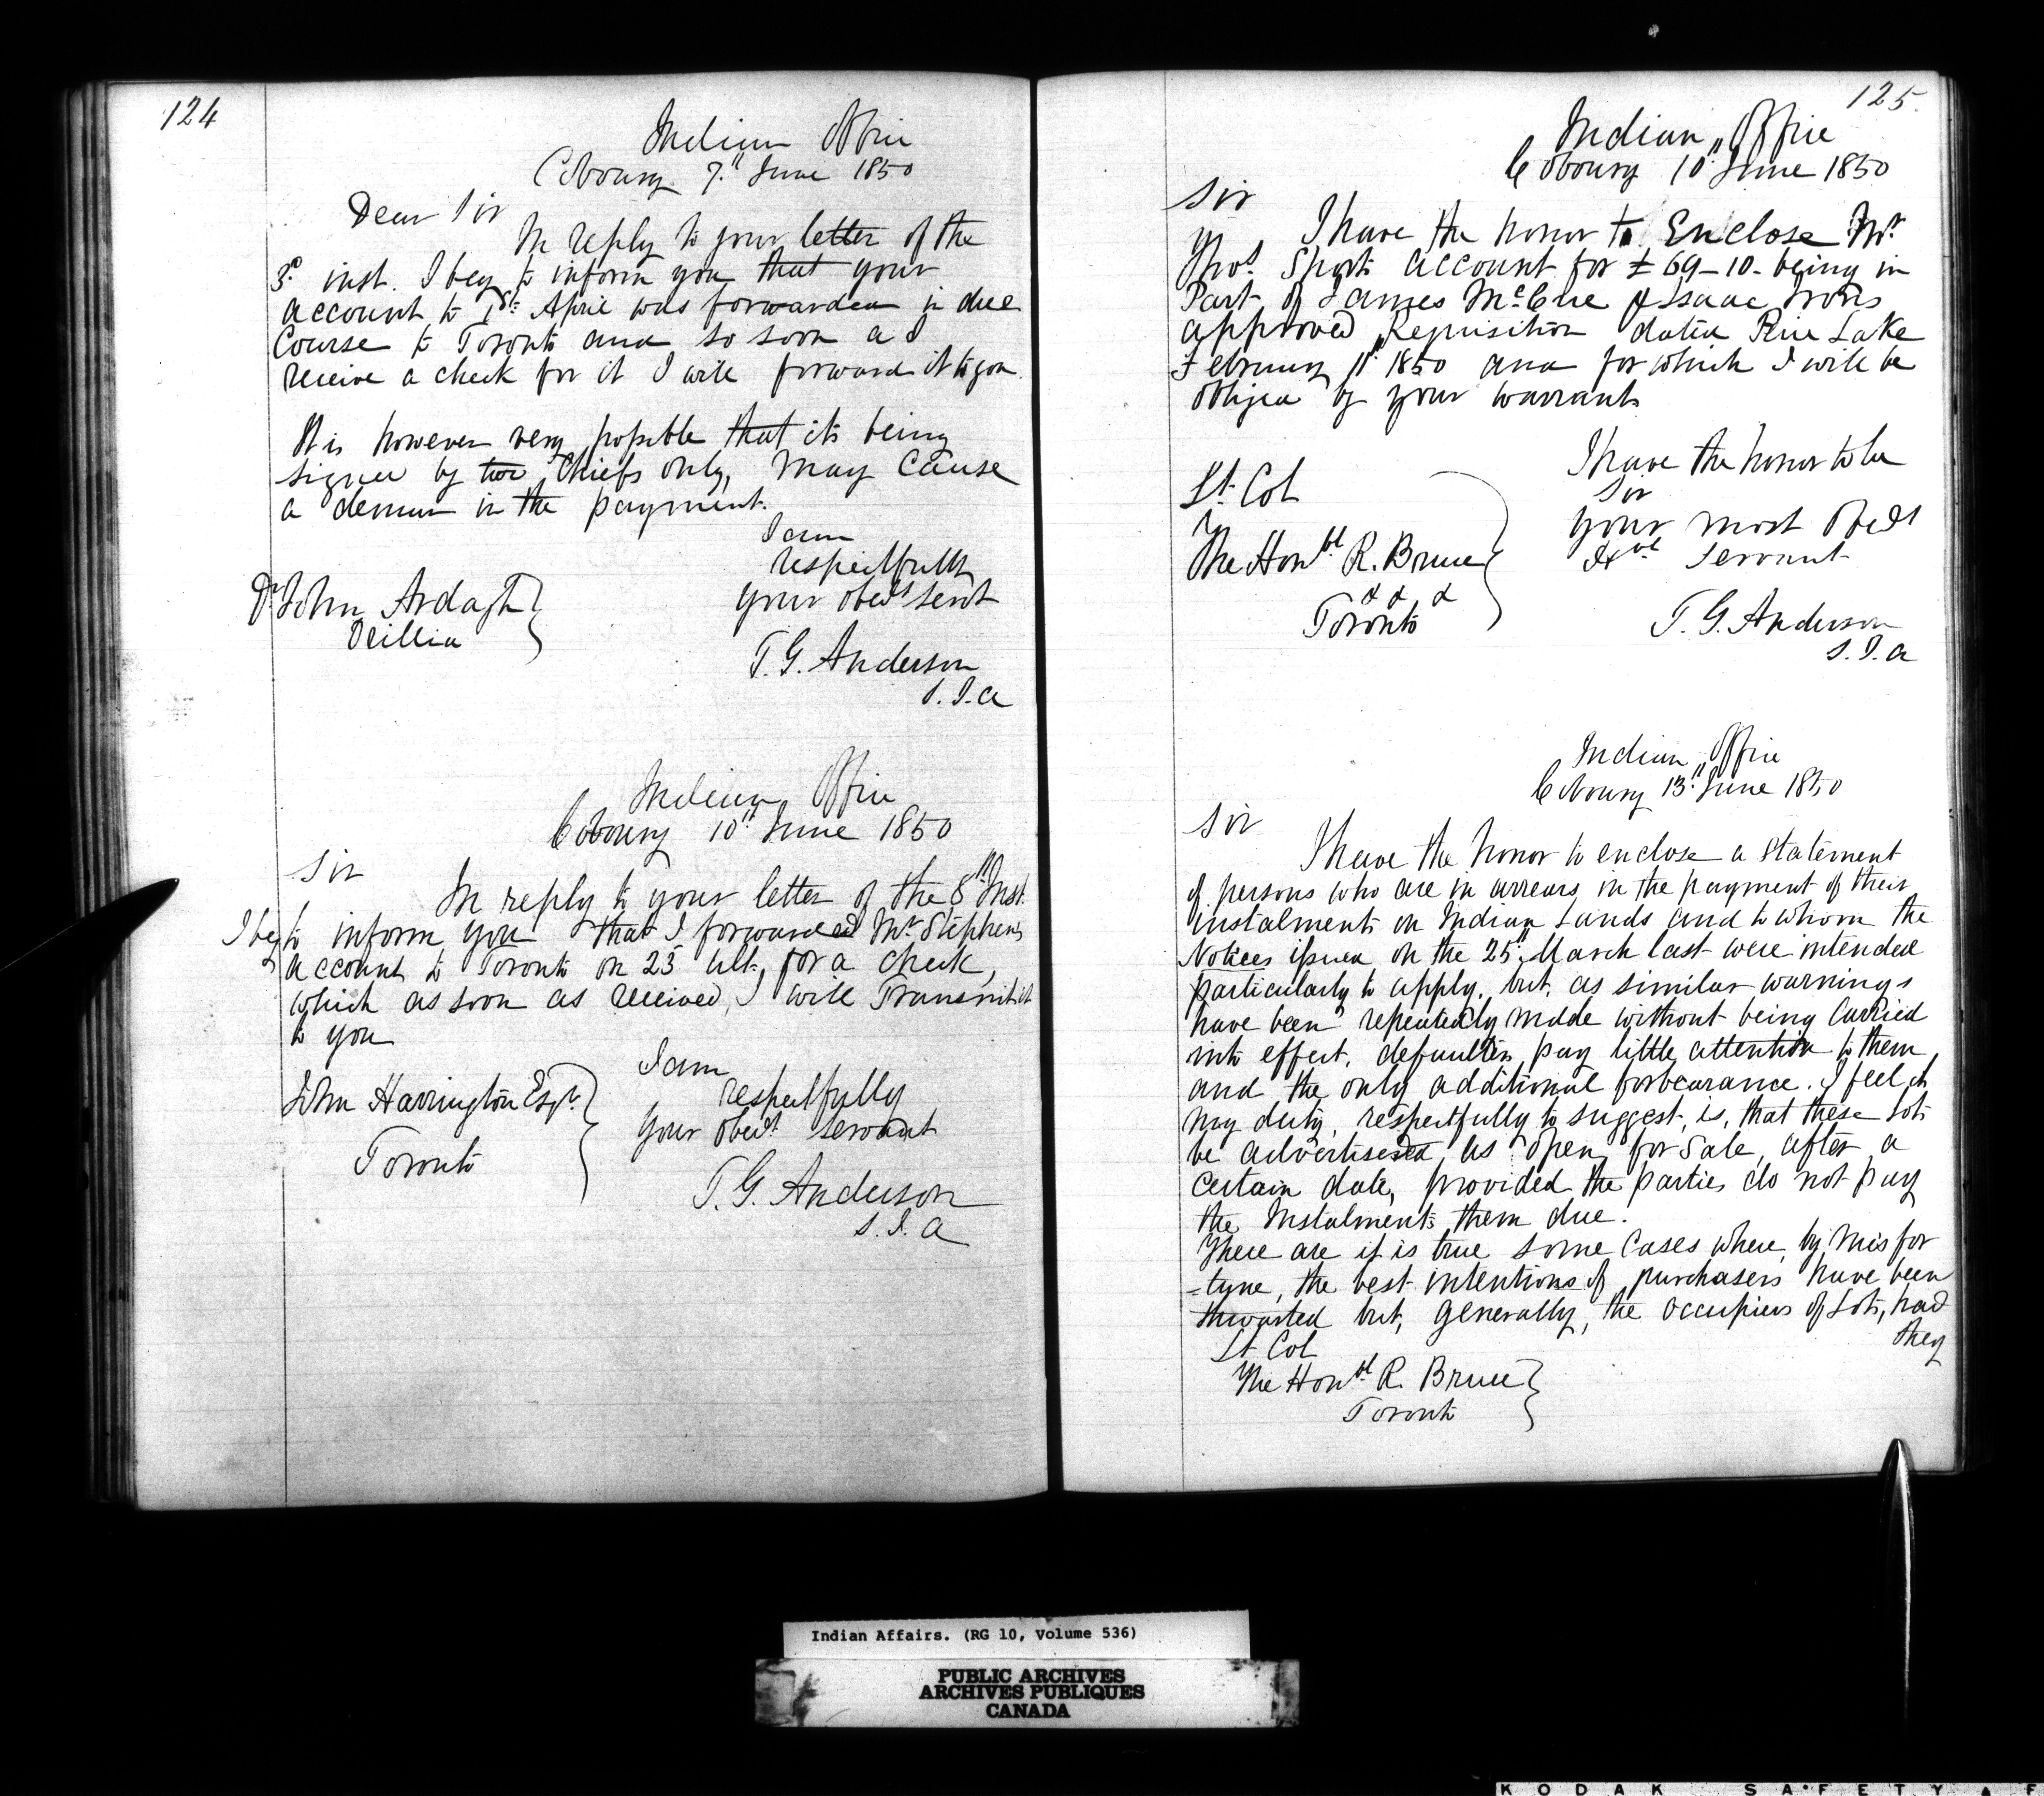 124
Indian Office
Cobourg 7th June 1850
Dear Sir
In reply to your letter of the
3d inst. I beg to inform you that your
account to 1st April was forwarded in due
Course to Toronto and so soon as I
receive a check for it I will forward it to you.
It is however very possible that its being
signed by two Chiefs only, may cause
a demur in the payment.
I am
respectfully
your obedt servt
Dr John Ardagh
Orillia
T. G. Anderson
S. I. A
Indian Office
Cobourg 10th June 1850
Sir
In reply to your letter of the 8th Inst.
I beg to inform you that I forwarded Mr Stephens
account to Toronto on 23 ult. for a check,
which as soon as received, I will Transmit it
to you
I am
respectfully
your obedt servant
John Harrington Esqr.
Toronto
T. G. Anderson
S. I. A
125
Indian Office
Cobourg 10th June 1850
Sir
I have the honor to Enclose Mr.
Thos. Short's account for £69-10- being in
Part of James McCue & Isaac Irons
approved Requisition dated Rice Lake
February 11th 1850 and for which I will be
obliged by your warrant
I have the honor to be
Sir
your most Obedt
servant
Lt. Col
The Honbl R. Bruce
& & &
Toronto
T. G. Anderson
S. I. A
Indian Office
Cobourg 13th June 1850
Sir
I have the honor to enclose a Statement
of persons who are in arrears in the payment of their
instalments on Indian Lands and to whom the
Notices issued on the 25th March last were intended
particularly to apply. but, as similar warnings
have been repeatedly made without being Carried
into effect, defaulters pay little attention to them,
and the only additional forbearance. I feel it
my duty, respectfully to suggest, is, that these Lots
be advertised as open for Sale, after a
certain date, provided the parties do not pay
the Instalments them due.
There are it is true some Cases where, by misfor
-tune, the best intentions of purchasers have been
thwarted but, generally, the occupiers of Lots, had
they
Lt Col
The Honbl R. Bruce
Toronto
Indian Affairs. (RG 10, Volume 536)
PUBLIC ARCHIVES
ARCHIVES PUBLIQUES
CANADA
KODAK SAFETY F